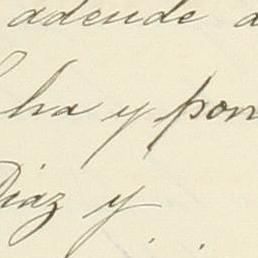 adeude a
ha y pon
Diaz y